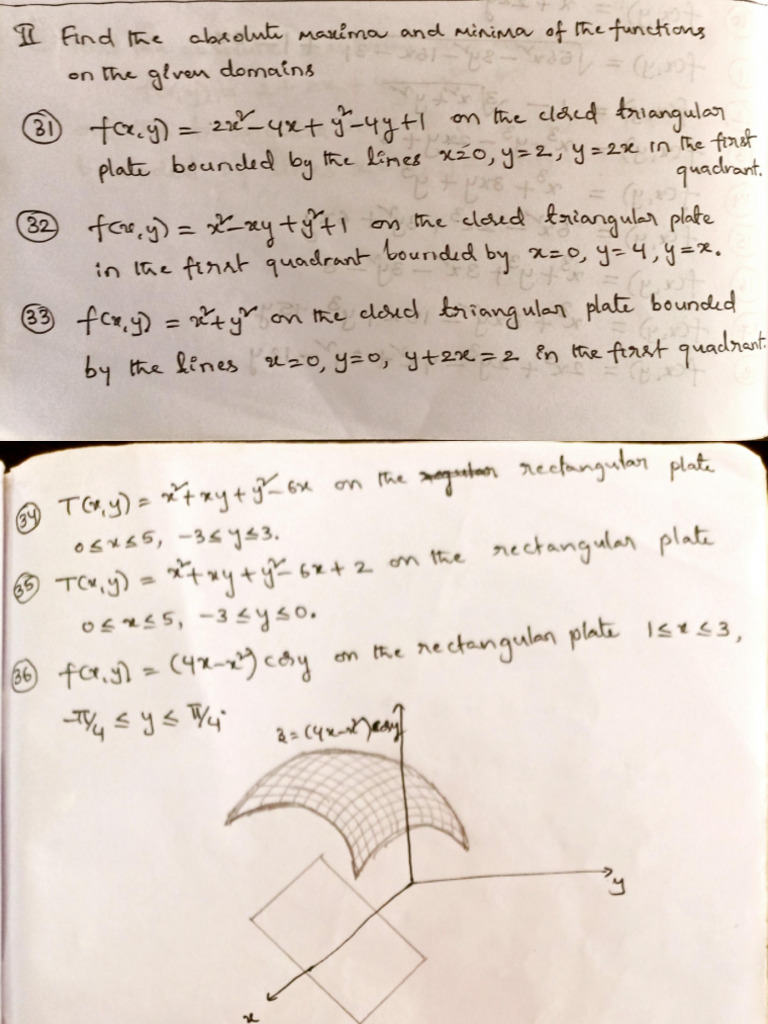 II Find the absolute maxima and minima of the functions
on the given domains
(31) f(x,y) = 2x² - 4x + y² - 4y + 1 on the closed triangular
plate bounded by the lines x=0, y=2, y=2x in the first
quadrant.
(32) f(x,y) = x² - xy + y² + 1 on the closed triangular plate
in the first quadrant bounded by x=0, y=4, y=x.
(33) f(x,y) = x² + y² on the closed triangular plate bounded
by the lines x=0, y=0, y+2x=2 in the first quadrant.
(34) T(x,y) = x² + xy + y² - 6x on the rectangular plate
0≤x≤5, -3≤y≤3.
(35) T(x,y) = x² + xy + y² - 6x + 2 on the rectangular plate
0≤x≤5, -3≤y≤0.
(36) f(x,y) = (4x-x²) cosy on the rectangular plate 1≤x≤3,
-π/4 ≤ y ≤ π/4.
z=(4x-x²)cosy
y
x